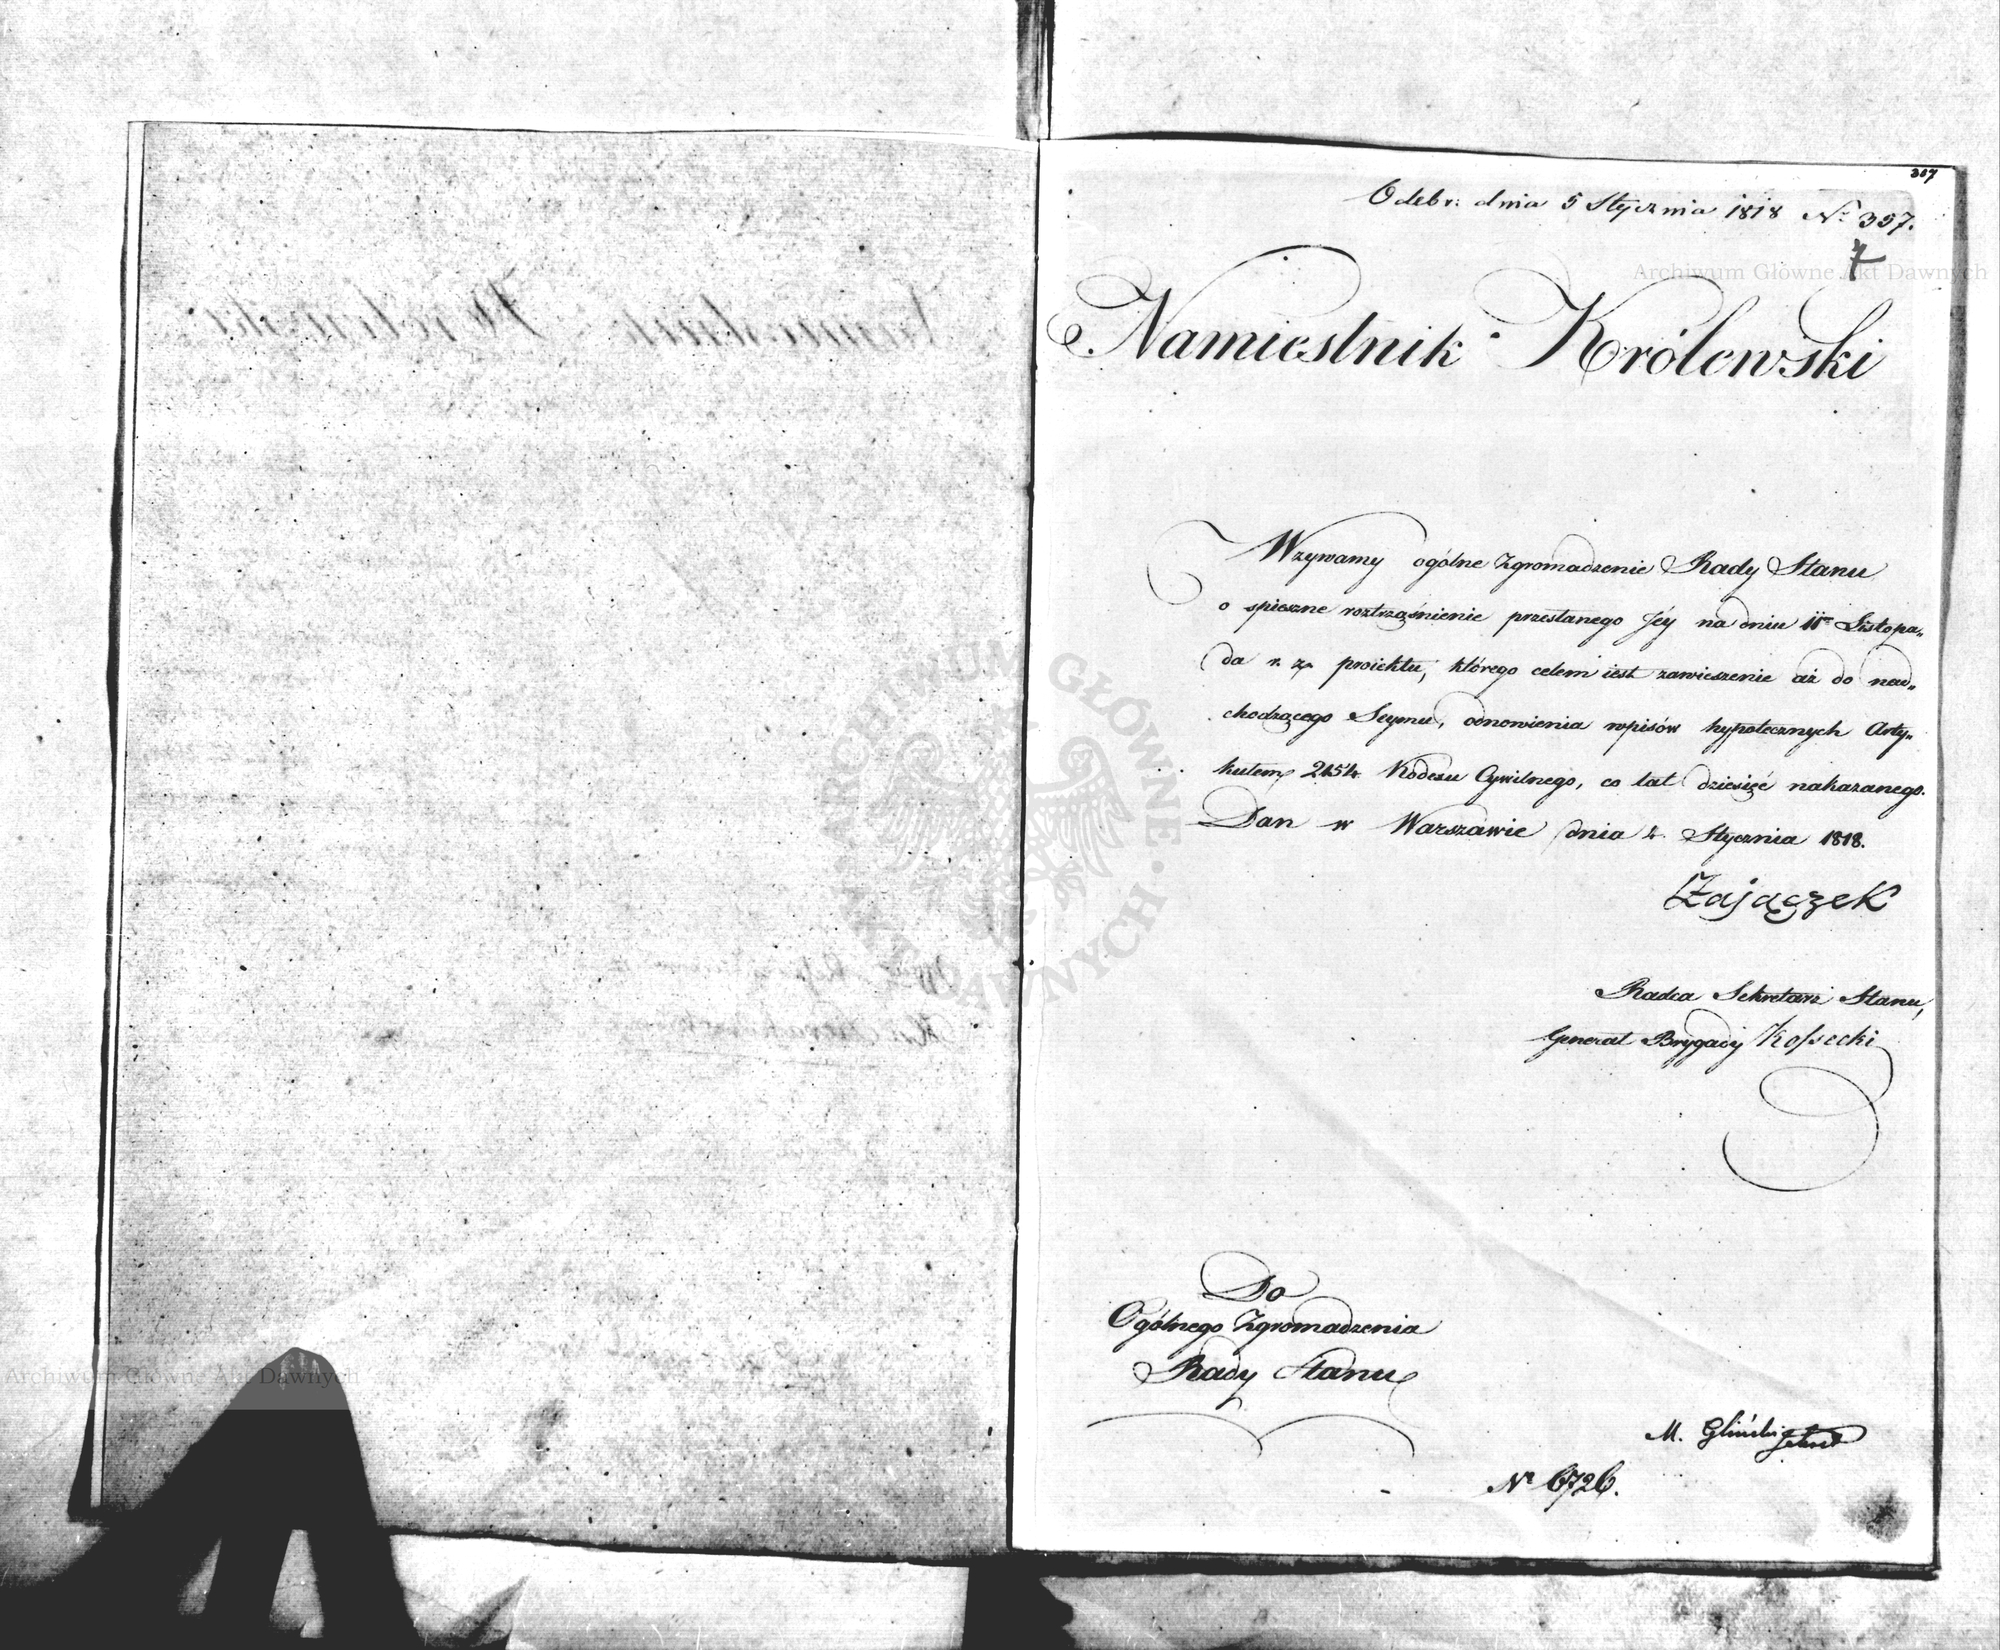 307
Odebr: dnia 5 Stycznia 1818 Nº 357.
7
Namiestnik Królewski
Wzywamy ogólne Zgromadzenie Rady Stanu
o spieszne roztrząśnienie przesłanego Jéy na dniu 11ᵐ Listopa„
da r. z. proiektu, którego celem iest zawieszenie aż do nad„
chodzącego Seymu, odnowienia wpisów hypotecznych Arty„
kułem 2154 Kodexu Cywilnego, co lat dziesięć nakazanego.
Dan w Warszawie dnia 4 Stycznia 1818.
Zajączek
Radca Sekretarz Stanu,
Generał Brygady Kossecki
Do
Ogólnego Zgromadzenia
Rady Stanu
M. Gliński
Nº 6726.
Archiwum Główne Akt Dawnych
Archiwum Główne Akt Dawnych
ARCHIWUM GŁÓWNE AKT DAWNYCH